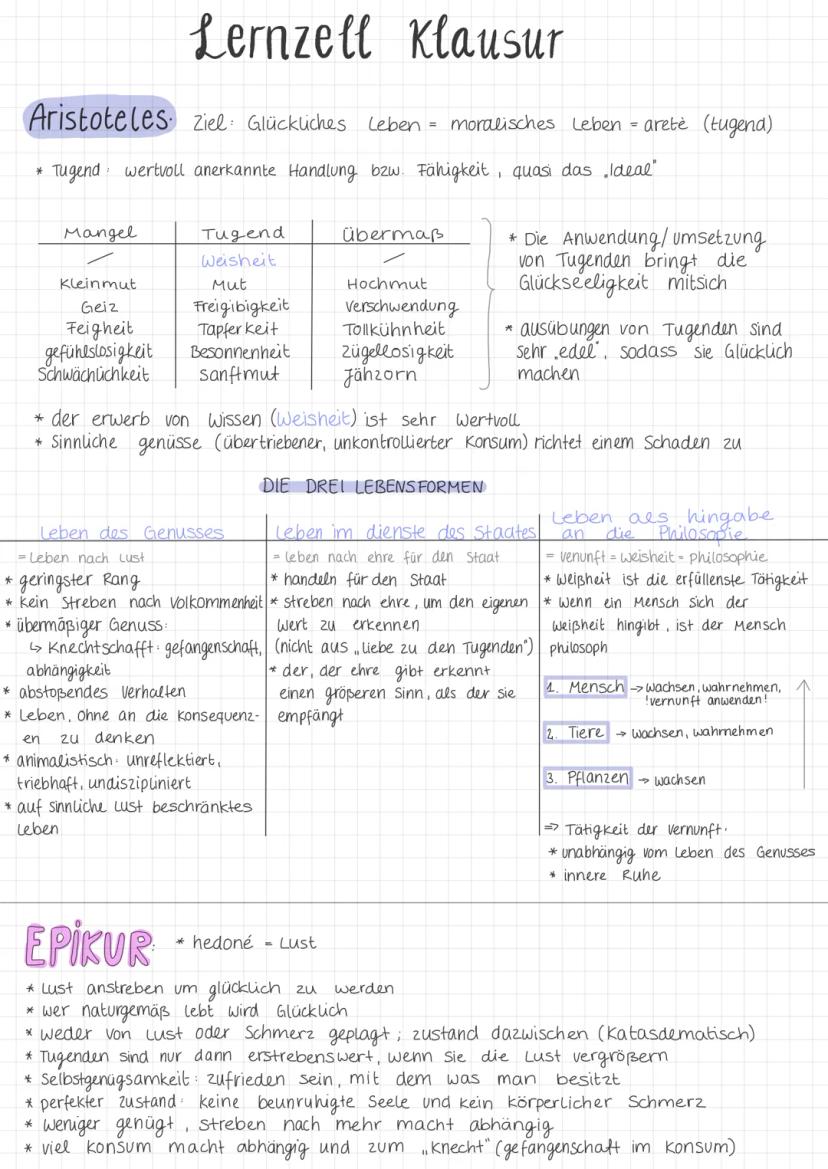 Lernzett Klausur
Aristoteles: Ziel: Glückliches Leben = moralisches Leben = aretè (tugend)
* Tugend: wertvoll anerkannte Handlung bzw. Fähigkeit, quasi das „Ideal"
Mangel Tugend Übermaß
/ Weisheit /
Kleinmut Mut Hochmut
Geiz Freigibigkeit Verschwendung
Feigheit Tapferkeit Tollkühnheit
gefühlslosigkeit Besonnenheit Zügellosigkeit
Schwächlichkeit Sanftmut Jähzorn
* Die Anwendung/umsetzung
von Tugenden bringt die
Glückseeligkeit mitsich
* ausübungen von Tugenden sind
sehr „edel", sodass sie Glücklich
machen
* der erwerb von Wissen (Weisheit) ist sehr Wertvoll
* Sinnliche genüsse (übertriebener, unkontrollierter Konsum) richtet einem Schaden zu
DIE DREI LEBENSFORMEN
Leben des Genusses
= Leben nach Lust
* geringster Rang
* kein Streben nach Volkommenheit
* übermäßiger Genuss:
↳ Knechtschafft: gefangenschaft,
abhängigkeit
* abstoßendes Verhalten
* Leben, ohne an die Konsequenz-
en zu denken
* animalistisch: unreflektiert,
triebhaft, undiszipliniert
* auf sinnliche Lust beschränktes
Leben
Leben im dienste des Staates
= leben nach ehre für den Staat
* handeln für den Staat
* streben nach ehre, um den eigenen
wert zu erkennen
(nicht aus „liebe zu den Tugenden")
* der, der ehre gibt erkennt
einen größeren Sinn, als der sie
empfängt
Leben als hingabe
an die Philosopie
= venunft = weisheit = philosophie
* Weißheit ist die erfüllenste Tätigkeit
* wenn ein Mensch sich der
weißheit hingibt, ist der Mensch
philosoph
1. Mensch → wachsen, wahrnehmen,
!vernunft anwenden!
2. Tiere → wachsen, wahrnehmen
3. Pflanzen → wachsen
⇒ Tätigkeit der Vernunft:
* unabhängig vom Leben des Genusses
* innere Ruhe
EPIKUR: * hedoné = Lust
* Lust anstreben um glücklich zu werden
* wer naturgemäß lebt wird Glücklich
* weder von Lust oder Schmerz geplagt; zustand dazwischen (Katasdematisch)
* Tugenden sind nur dann erstrebenswert, wenn sie die Lust vergrößern
* Selbstgenügsamkeit: zufrieden sein, mit dem was man besitzt
* perfekter zustand: keine beunruhigte Seele und kein körperlicher Schmerz
* weniger genügt, streben nach mehr macht abhängig
* viel konsum macht abhängig und zum „Knecht" (gefangenschaft im Konsum)